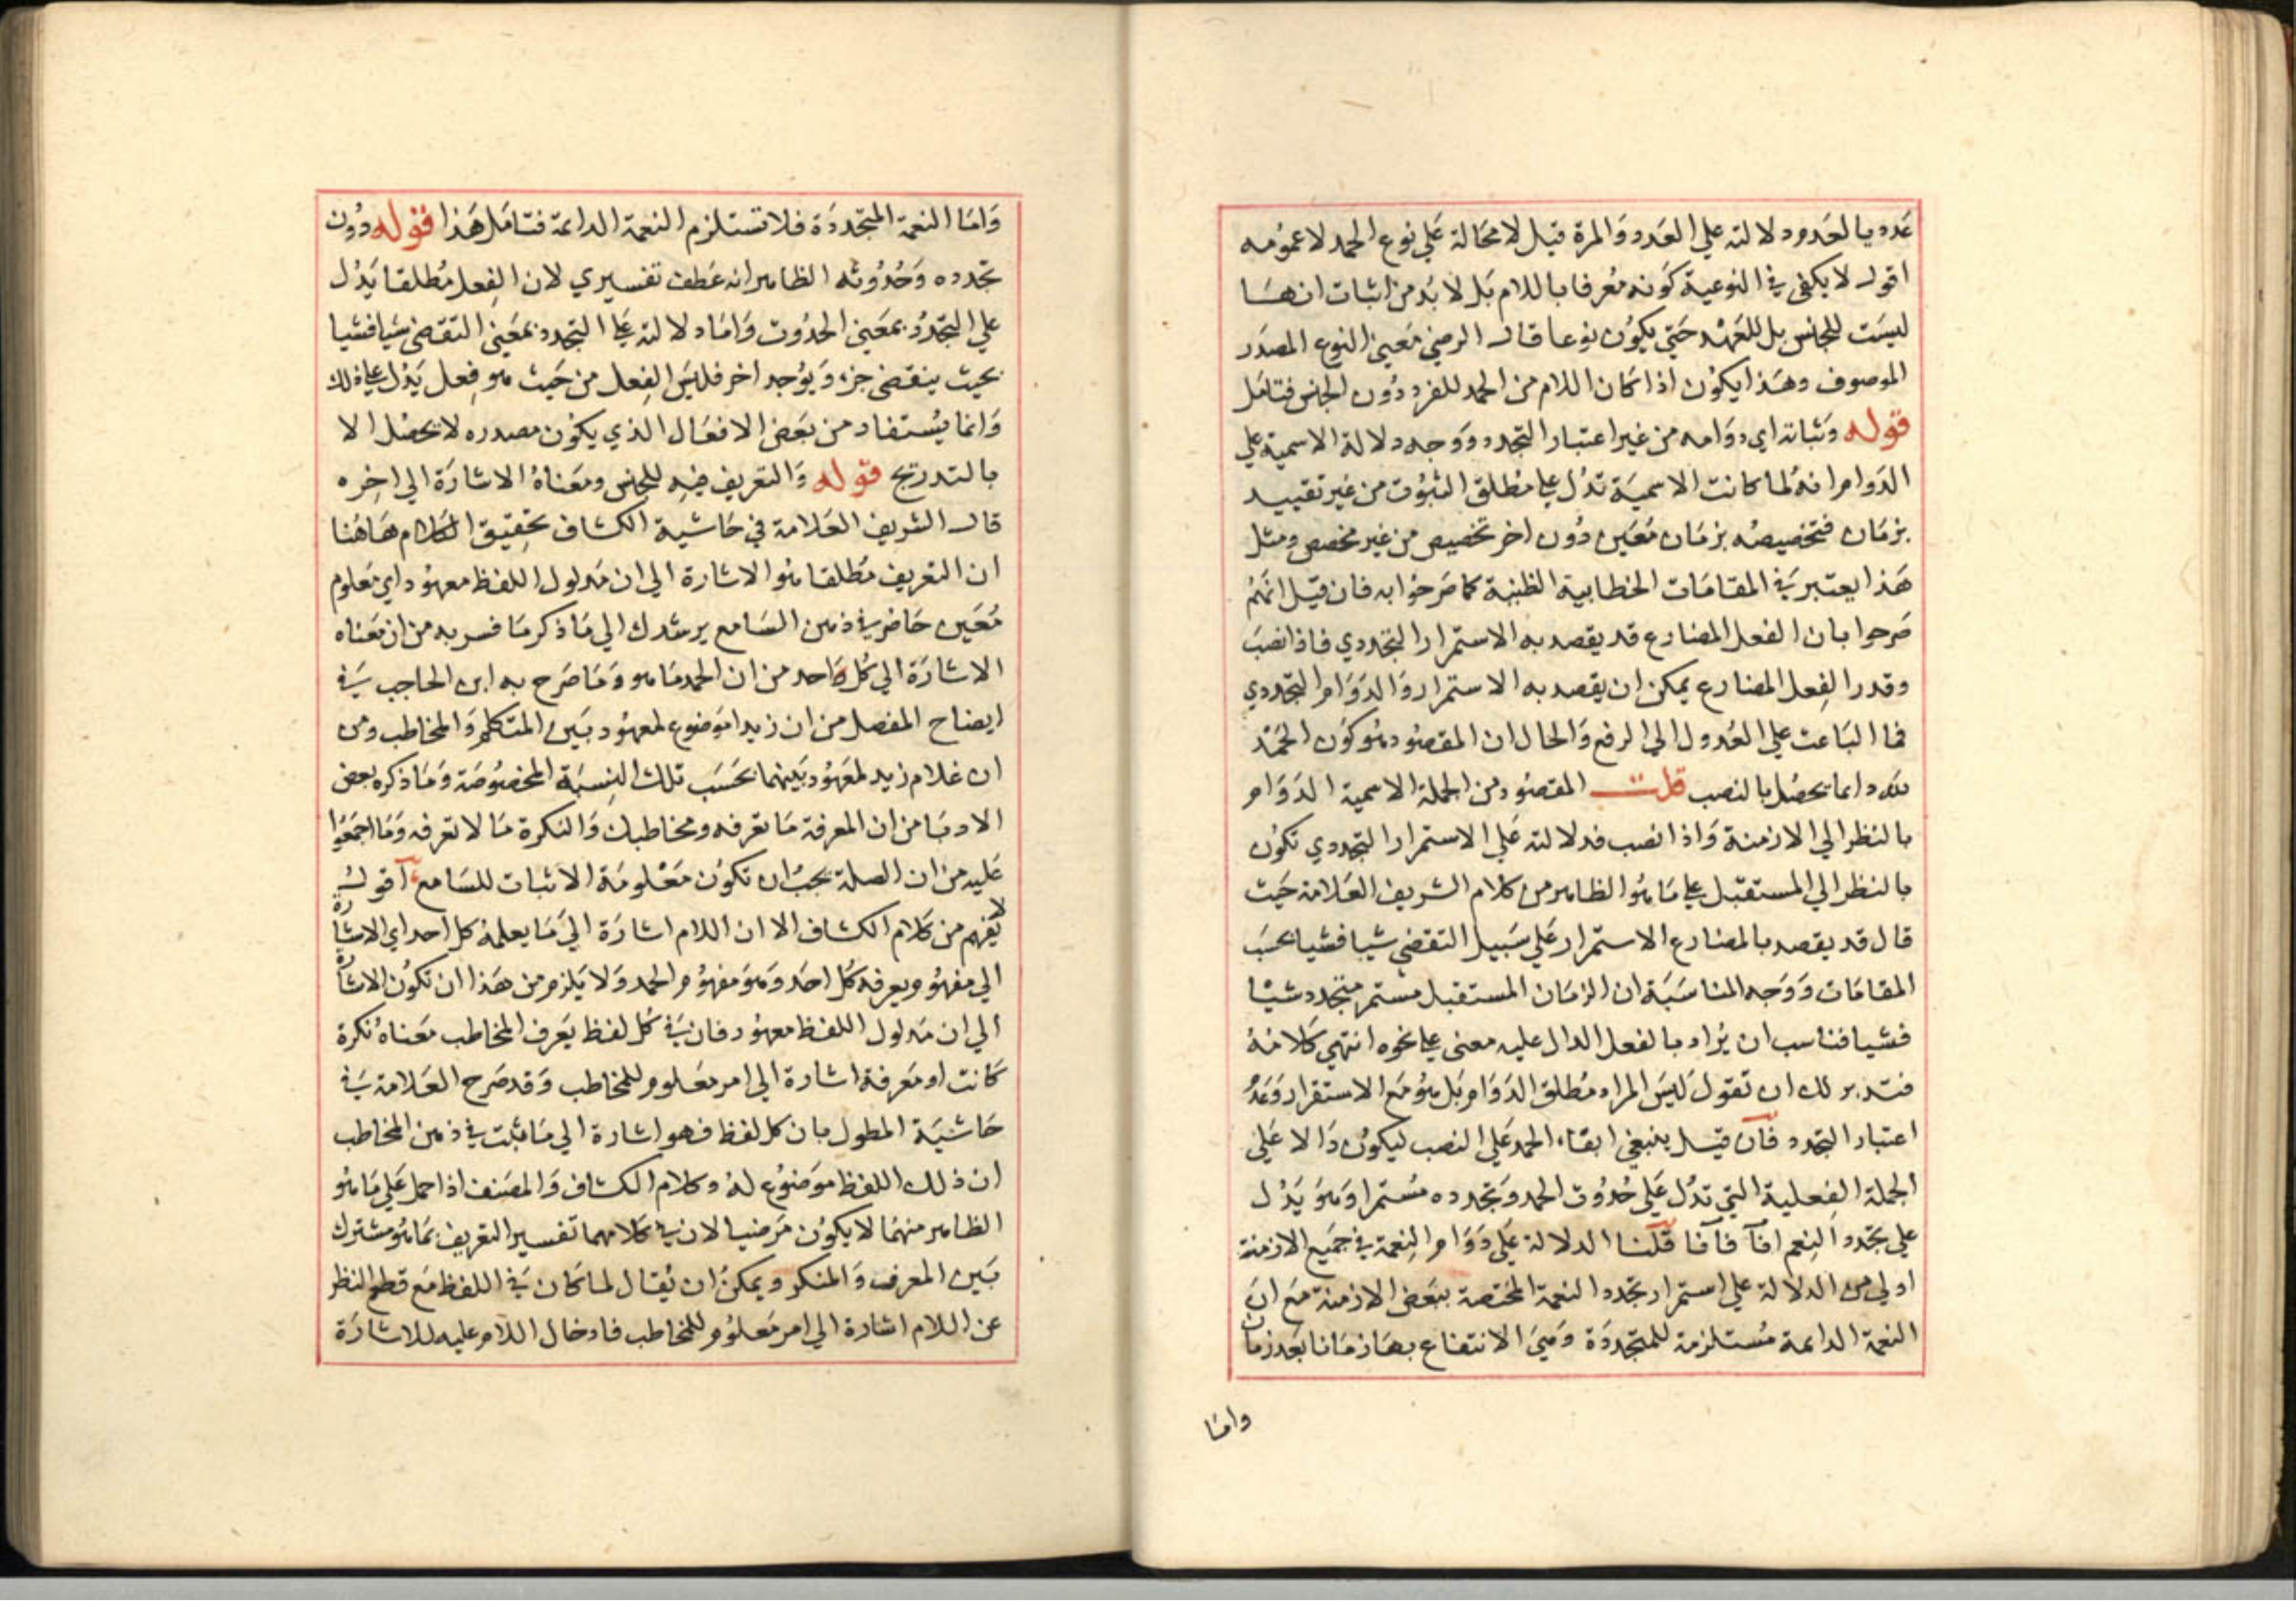 عدد يا لعدود دلالته علي العدد والمرة قيل لا محالة علي نوع الحمد لا عمومه
اقول لا يكفي في النوعية كونه معرفا باللام بل لا بد من اثبات انها
ليست للجنس بل للعهد حتي يكون نوعا قال الرضي معني النوع المصدر
الموصوف وهذا يكون اذا كان اللام من الحمد للفرد دون الجنس فتامل
قوله وثباته اي دوامه من غير اعتبار التجدد ووجه دلالة الاسمية علي
الدوام انه لما كانت الاسمية تدل علي مطلق الثبوت من غير تقييد
بزمان فتخصيصه بزمان معين دون اخر تخصيص من غير مخصص ومثل
هذا يعتبر في المقامات الخطابية الظنية كما صرحوا به فان قيل انهم
صرحوا بان الفعل المضارع قد يقصد به الاستمرار التجددي فاذا نصب
وقدر الفعل المضارع يمكن ان يقصد به الاستمرار والدوام التجددي
فما الباعث علي العدول الي الرفع والحال ان المقصود هو كون الحمد
لله دايما يحصل بالنصب قلت المقصود من الجملة الاسمية الدوام
بالنظر الي الازمنة واذا نصب فدلالته علي الاستمرار التجددي تكون
بالنظر الي المستقبل علي ما هو الظاهر من كلام الشريف العلامة حيث
قال قد يقصد بالمضارع الاستمرار علي سبيل التقضي شيا فشيا بحسب
المقامات ووجه المناسبة ان الزمان المستقبل مستمر متجدد شيا
فشيا فناسب ان يراد بالفعل الدال عليه معني علي نحوه انتهي كلامه
فتدبر لك ان تقول ليس المراد مطلق الدوام بل هو مع الاستقرار وعد
اعتبار التجدد فان قيل ينبغي ابقاء الحمد علي النصب ليكون دالا علي
الجملة الفعلية التي تدل علي حدوث الحمد وتجدده مستمرا وهو يدل
علي تجدد النعم آفآ فآفا قلنا الدلالة علي دوام النعمة في جميع الازمنة
اولي من الدلالة علي استمرار تجدد النعمة المختصة ببعض الازمنة مع ان
النعمة الدايمة مستلزمة للمتجددة وهي الانتفاع بها زمانا بعد زمان
واما
واما النعمة المتجددة فلا تستلزم النعمة الدائمة فتامل هذا قوله دون
تجدده وحدوثه الظاهر انه عطف تفسيري لان الفعل مطلقا يدل
علي التجدد بمعني الحدوث واما دلالته علي التجدد بمعني التقضي شيا فشيا
بحيث ينقضي جزء ويوجد اخر فليس الفعل من حيث هو فعل يدل علي ذلك
وانما يستفاد من بعض الافعال الذي يكون مصدره لا يحصل الا
بالتدريج قوله والتعريف فيه للجنس ومعناه الاشارة الي اخره
قال الشريف العلامة في حاشية الكشاف تحقيق الكلام هاهنا
ان التعريف مطلقا هو الاشارة الي ان مدلول اللفظ معهود اي معلوم
معين حاضر في ذهن السامع يرشدك الي ما ذكر ما فسر به من ان معناه
الاشارة الي كل واحد من ان الحمد ما هو وما صرح به ابن الحاجب في
ايضاح المفصل من ان زيدا موضوع لمعهود بين المتكلم والمخاطب ومن
ان غلام زيد لمعهود بينهما بحسب تلك النسبة المخصوصة وما ذكره بعض
الادبا من ان المعرفة ما تعرفه ومخاطبك والنكرة ما لا تعرفه وما اجمعوا
عليه من ان الصلة يجب ان تكون معلومة الاثبات للسامع اقول
لا يفهم من كلام الكشاف الا ان اللام اشارة الي ما يعلمه كل احد اي الاشارة
الي مفهوم ويعرفه كل احد وهو مفهوم الحمد ولا يلزم من هذا ان تكون الاشارة
الي ان مدلول اللفظ معهود فان في كل لفظ يعرف المخاطب معناه نكرة
كانت او معرفة اشارة الي امر معلوم للمخاطب وقد صرح العلامة في
حاشية المطول بان كل لفظ فهو اشارة الي ما يثبت في ذهن المخاطب
ان ذلك اللفظ موضوع له وكلام الكشاف والمصنف اذا حمل علي ما هو
الظاهر منهما لا يكون مرضيا لان في كلامهما تفسير التعريف بما هو مشترك
بين المعرف والمنكر ويمكن ان يقال لما كان في اللفظ مع قطع النظر
عن اللام اشارة الي امر معلوم للمخاطب فادخال اللام عليه للاشارة